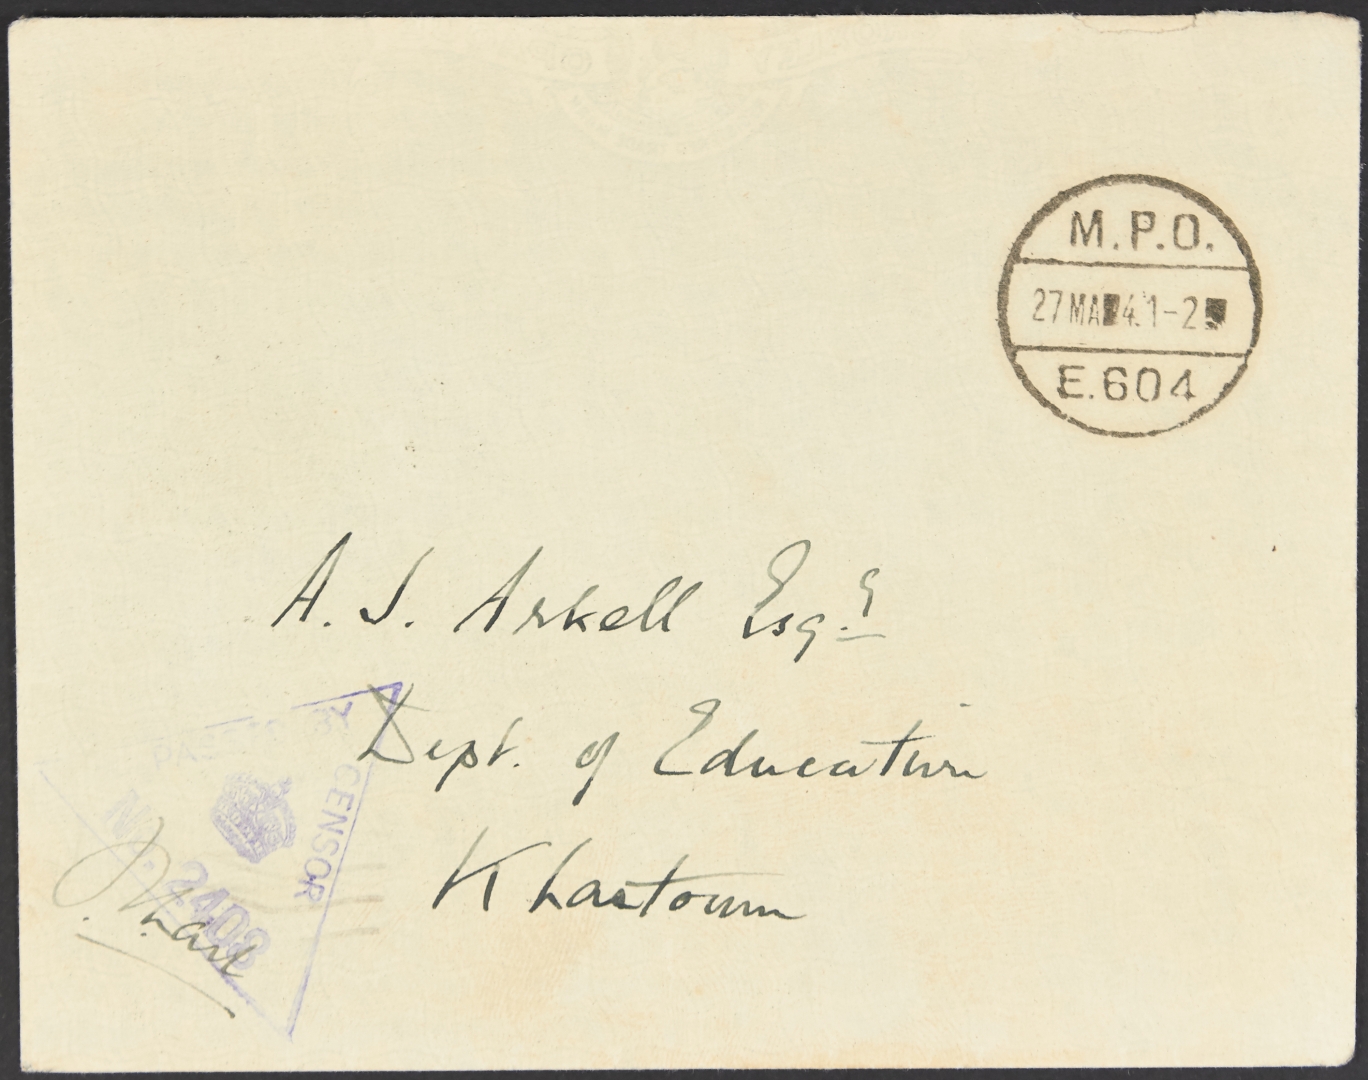 M.P.O.
27 MA 41-2
E.604
A. J. Arkell Esqr.
Dept. of Education
Khartoum
PASSED BY
CENSOR
No. 2408